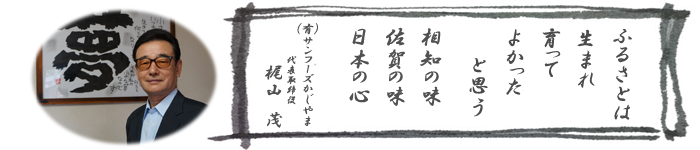 ふるさとは
生まれ
育って
よかった
と思う
相知の味
佐賀の味
日本の心
(有)サンフーズかじやま
代表取締役
梶山 茂
夢